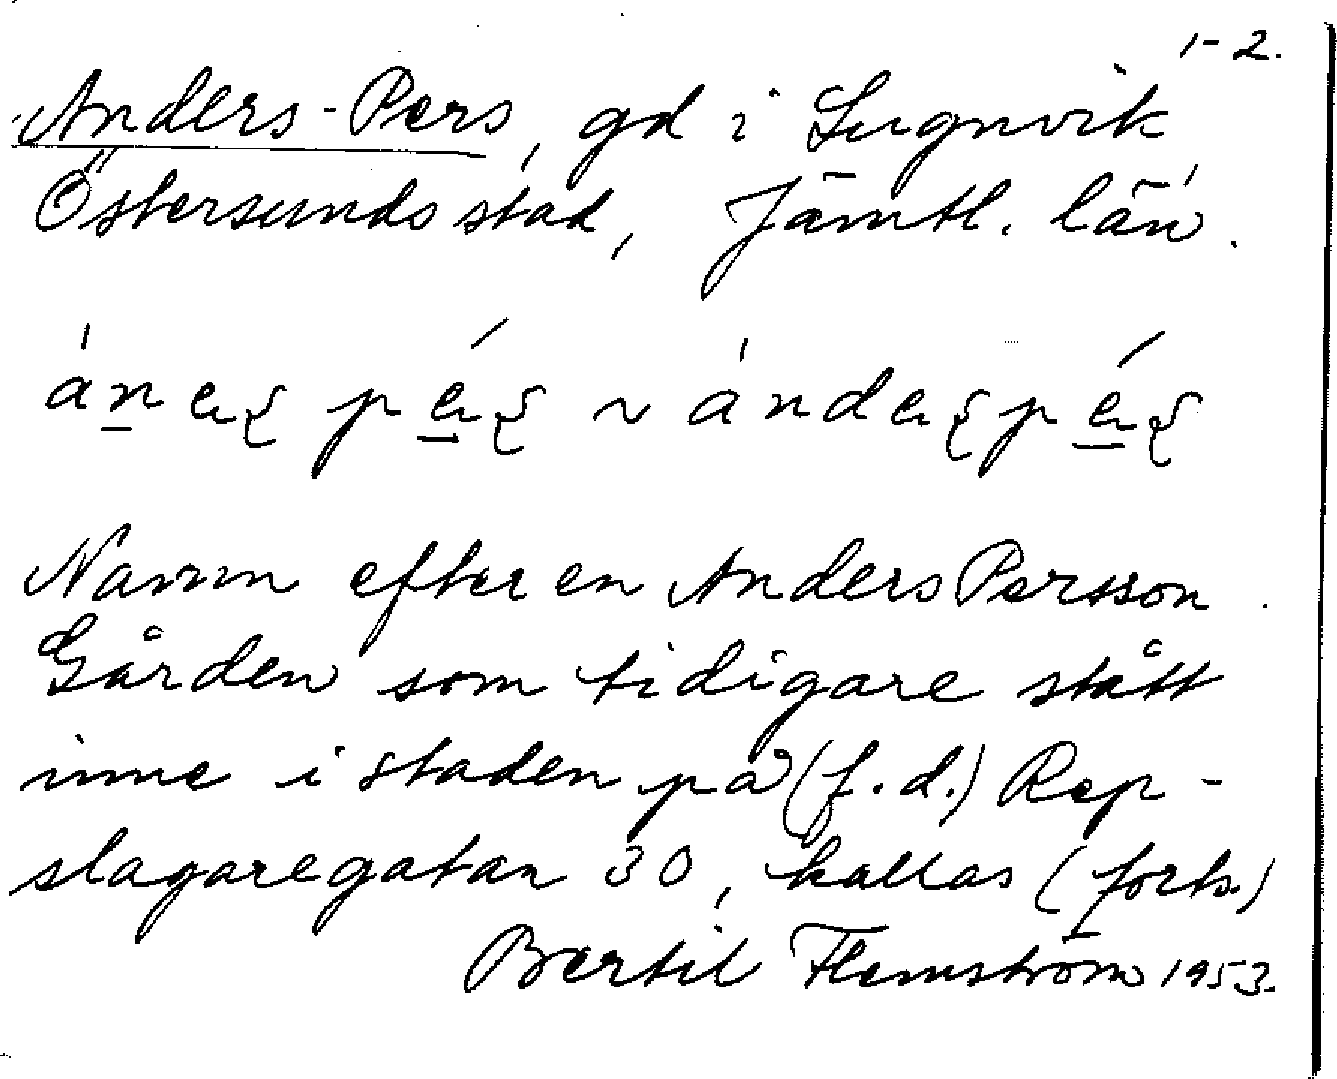 1-2.
Anders-Pers, gd i Lugnvik
Östersunds stad, Jämtl. län.
Namn efter en Anders Persson.
Gården som tidigare stått
inne i staden på (f.d.) Rep-
slagaregatan 30, kallas (forts.)
Bertil Flemström 1953.